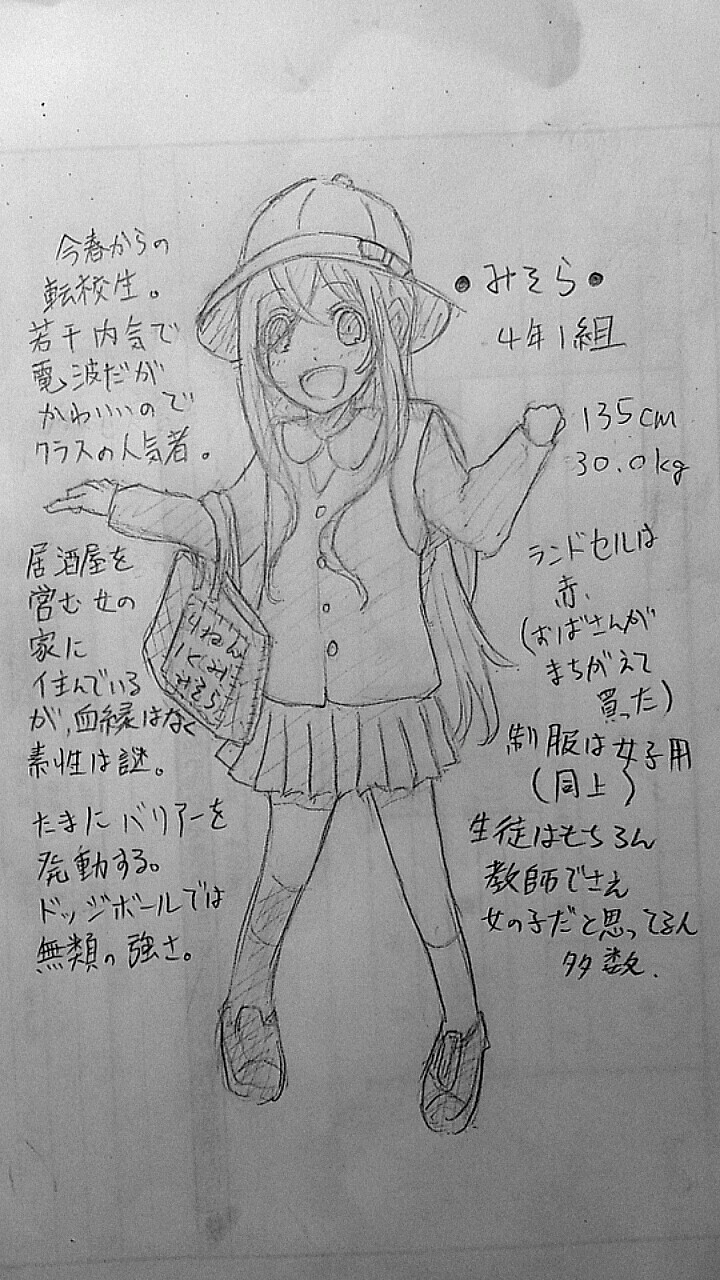 今春からの
転校生。
若干内気で
電波だが
かわいいので
クラスの人気者。
居酒屋を
営む女の
家に
住んでいる
が、血縁はなく
素性は謎。
たまにバリアーを
発動する。
ドッジボールでは
無類の強さ。
●みそら●
4年1組
135cm
30.0kg
ランドセルは
赤、
(おばさんが
まちがえて
買った)
制服は女子用
(同上)
生徒はもちろん
教師でさえ
女の子だと思ってるん
多数.
4ねん
1くみ
みそら